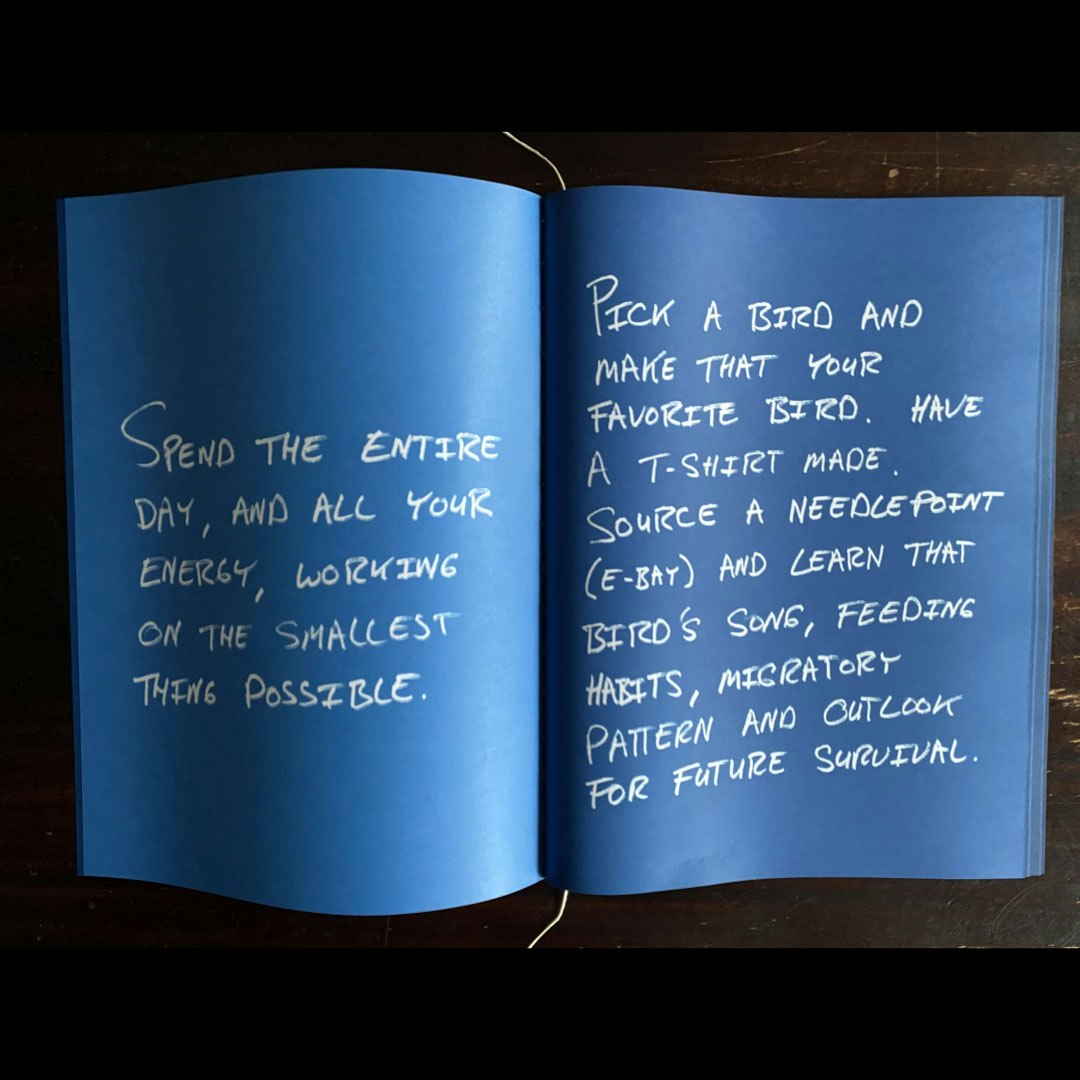 SPEND THE ENTIRE
DAY, AND ALL YOUR
ENERGY, WORKING
ON THE SMALLEST
THING POSSIBLE.
PICK A BIRD AND
MAKE THAT YOUR
FAVORITE BIRD. HAVE
A T-SHIRT MADE.
SOURCE A NEEDLEPOINT
(E-BAY) AND LEARN THAT
BIRD'S SONG, FEEDING
HABITS, MIGRATORY
PATTERN AND OUTLOOK
FOR FUTURE SURVIVAL.